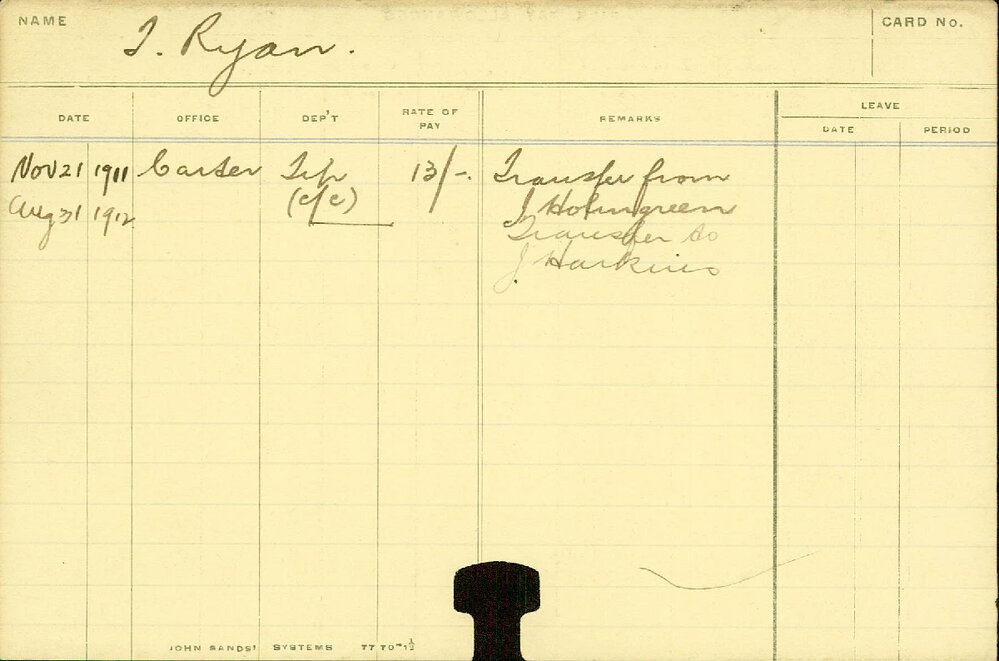 NAME T. Ryan. CARD No.
DATE OFFICE DEP'T RATE OF PAY REMARKS LEAVE
DATE PERIOD
Nov 21 1911 Carter 13/-. Transfer from
Aug 31 1912 (c/c) J Holmgreen
Transfer to
J Harkins
JOHN SANDS' SYSTEMS